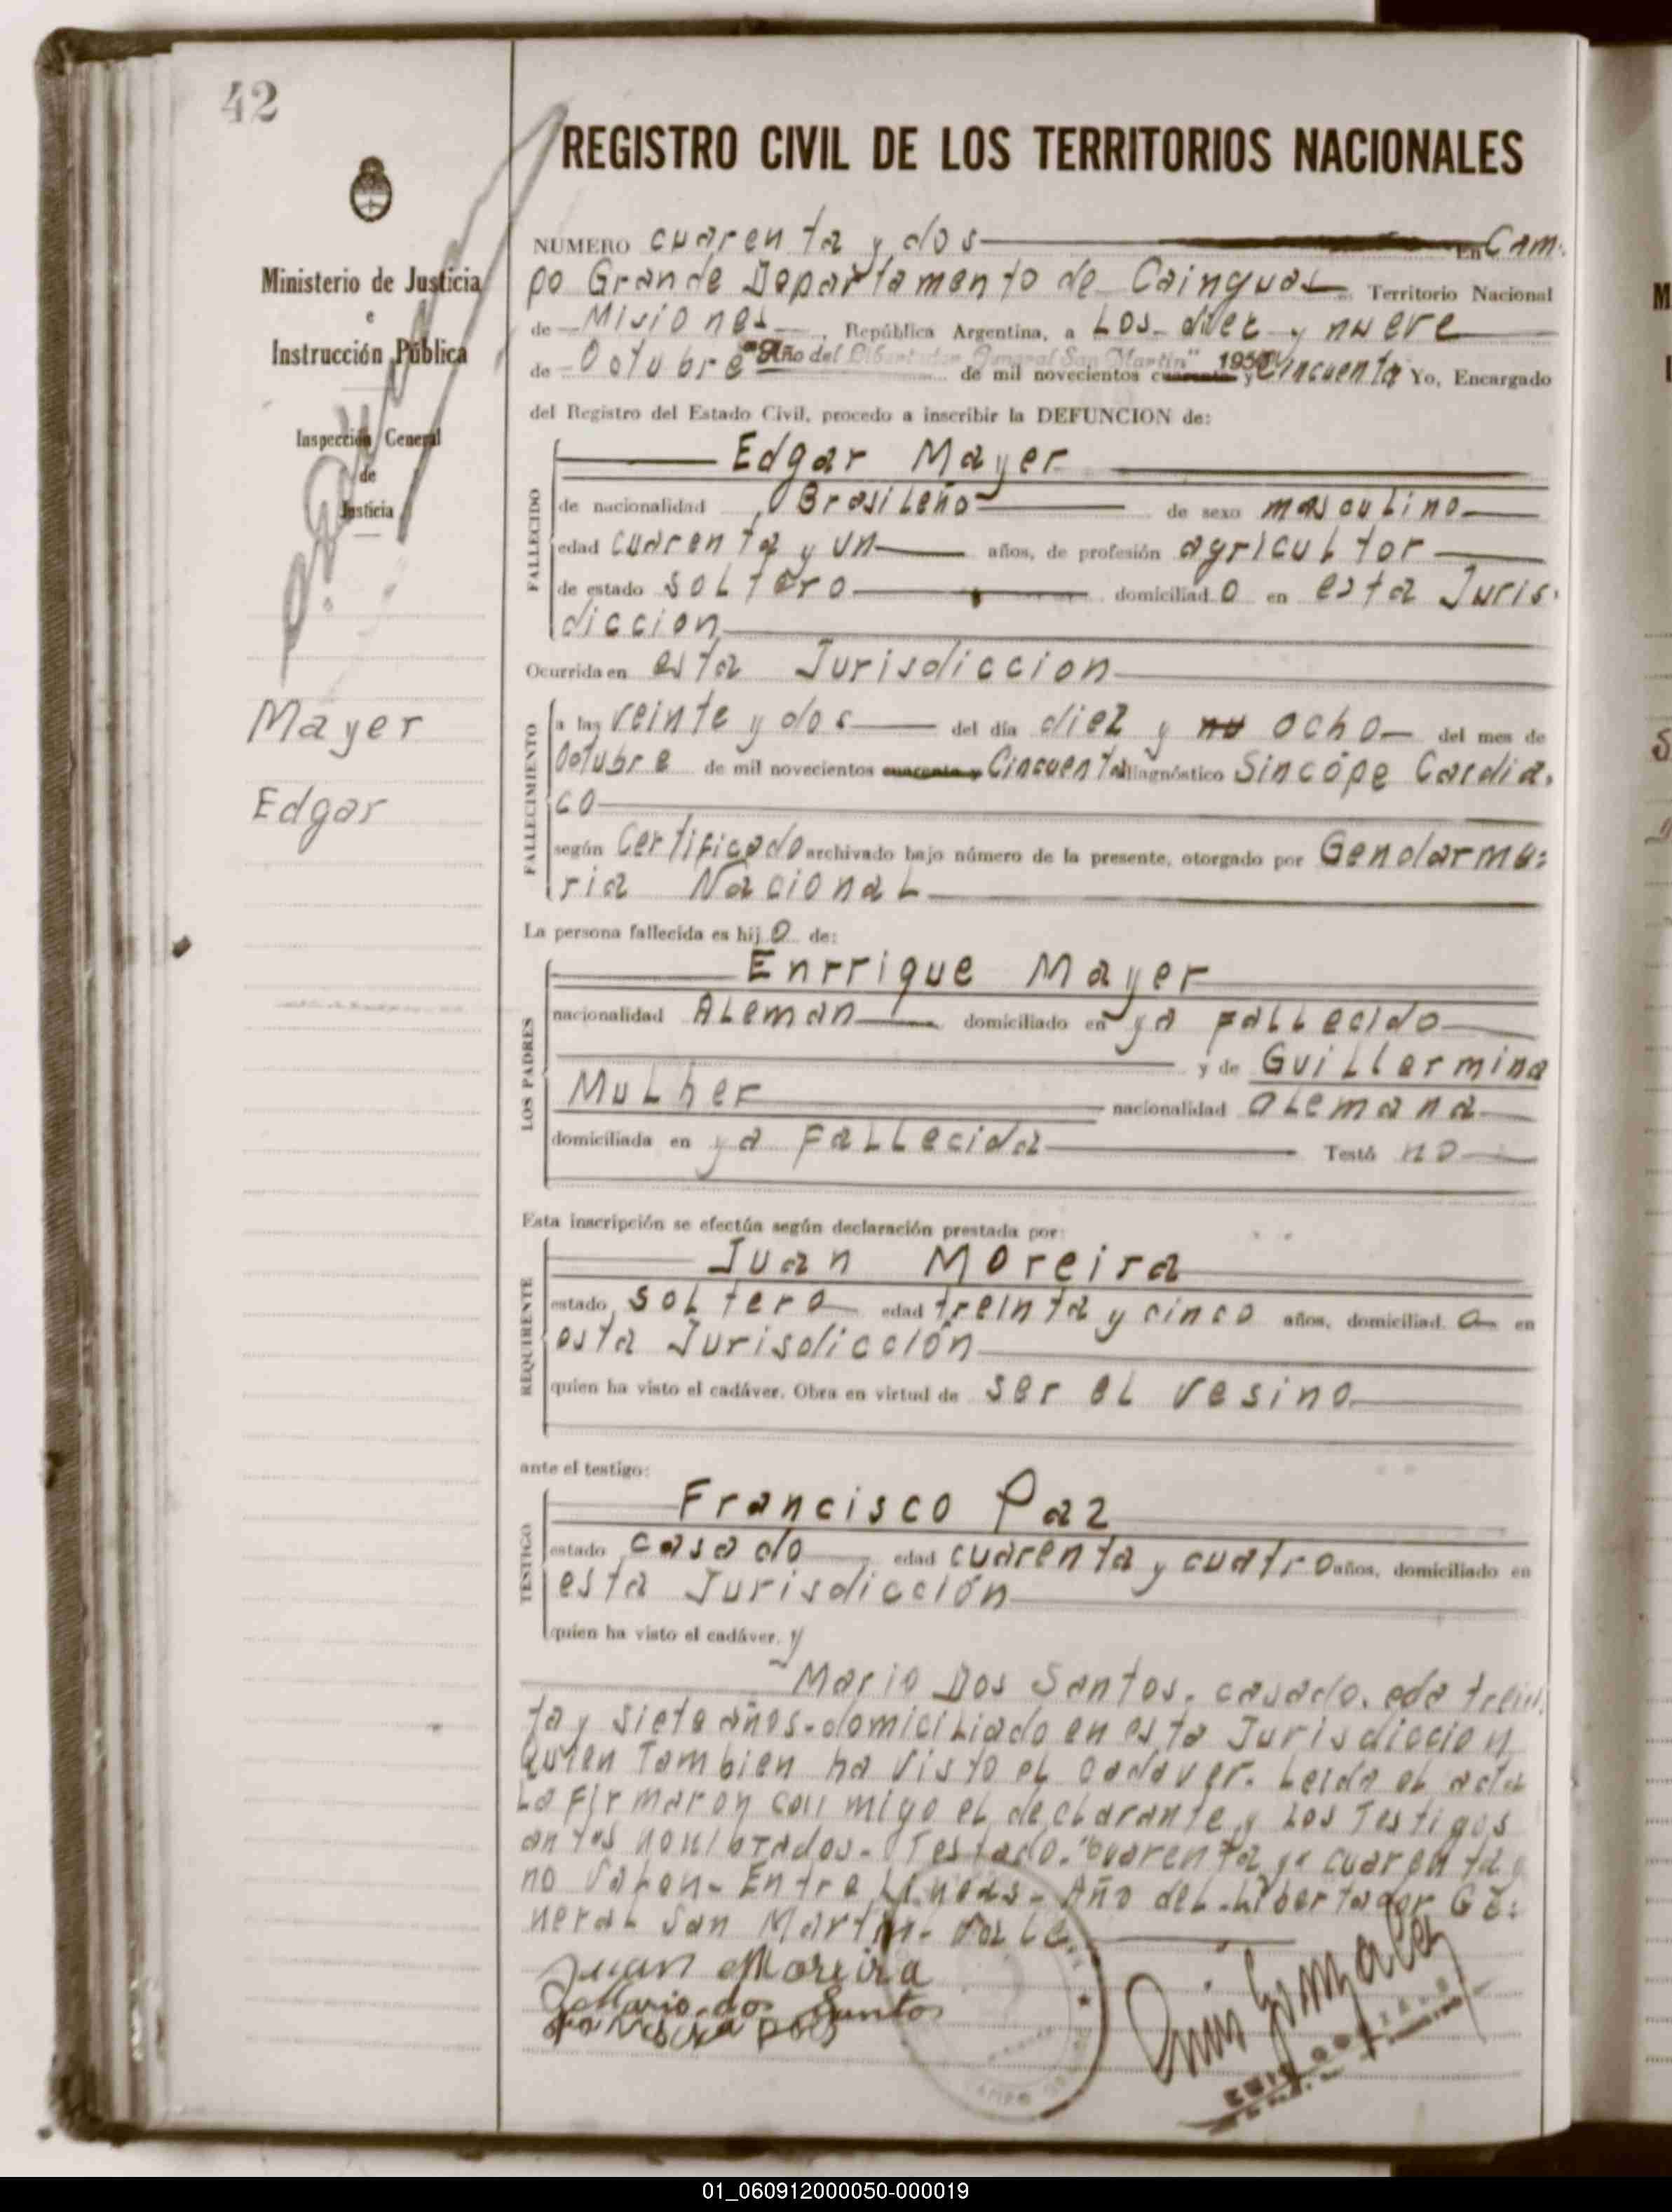 42
REGISTRO CIVIL DE LOS TERRITORIOS NACIONALES
Ministerio de Justicia
e
Instrucción Pública
Inspección General
de
Justicia
Mayer
Edgar
NUMERO cuarenta y dos En Cam-
po Grande Departamento de Cainguas Territorio Nacional
de Misiones, República Argentina, a Los diez y nueve
"Año del Libertador General San Martin" 1950
de Octubre de mil novecientos cuarenta y Cincuenta Yo, Encargado
del Registro del Estado Civil, procedo a inscribir la DEFUNCION de:
FALLECIDO
Edgar Mayer
de nacionalidad Brasileño de sexo masculino
edad cuarenta y un años, de profesión agricultor
de estado soltero domiciliado en esta Juris-
diccion
Ocurrida en esta Jurisdiccion
FALLECIMIENTO
a las veinte y dos del día diez y nu ocho del mes de
Octubre de mil novecientos cuarenta y Cincuenta diagnóstico Sincópe Cardia-
co
según Certificado archivado bajo número de la presente, otorgado por Gendarme-
ria Nacional
La persona fallecida es hijo de:
LOS PADRES
Enrrique Mayer
nacionalidad Aleman domiciliado en ya fallecido
y de Guillermina
Mulher nacionalidad alemana
domiciliada en ya fallecida Testó no
Esta inscripción se efectúa según declaración prestada por:
REQUIRENTE
Juan Moreira
estado soltero edad treinta y cinco años, domiciliado en
esta Jurisdicción
quien ha visto el cadáver. Obra en virtud de ser el vesino
ante el testigo:
TESTIGO
Francisco Paz
estado casado edad cuarenta y cuatro años, domiciliado en
esta Jurisdicción
quien ha visto el cadáver. y
Mario Dos Santos, casado, eda trein-
ta y siete años-domiciliado en esta Jurisdiccion
Quien Tambien ha visto el cadaver. Leida el acta
La firmaron conmigo el declarante y Los Testigos
antes nombrados- Testado. "cuarenta y" cuarenta y
no Valen- Entre Lineas- Año del Libertador Ge-
neral San Martin- Vale.
Juan Moreira
Mario dos Santos
Luis Gonzalez
01_060912000050-000019